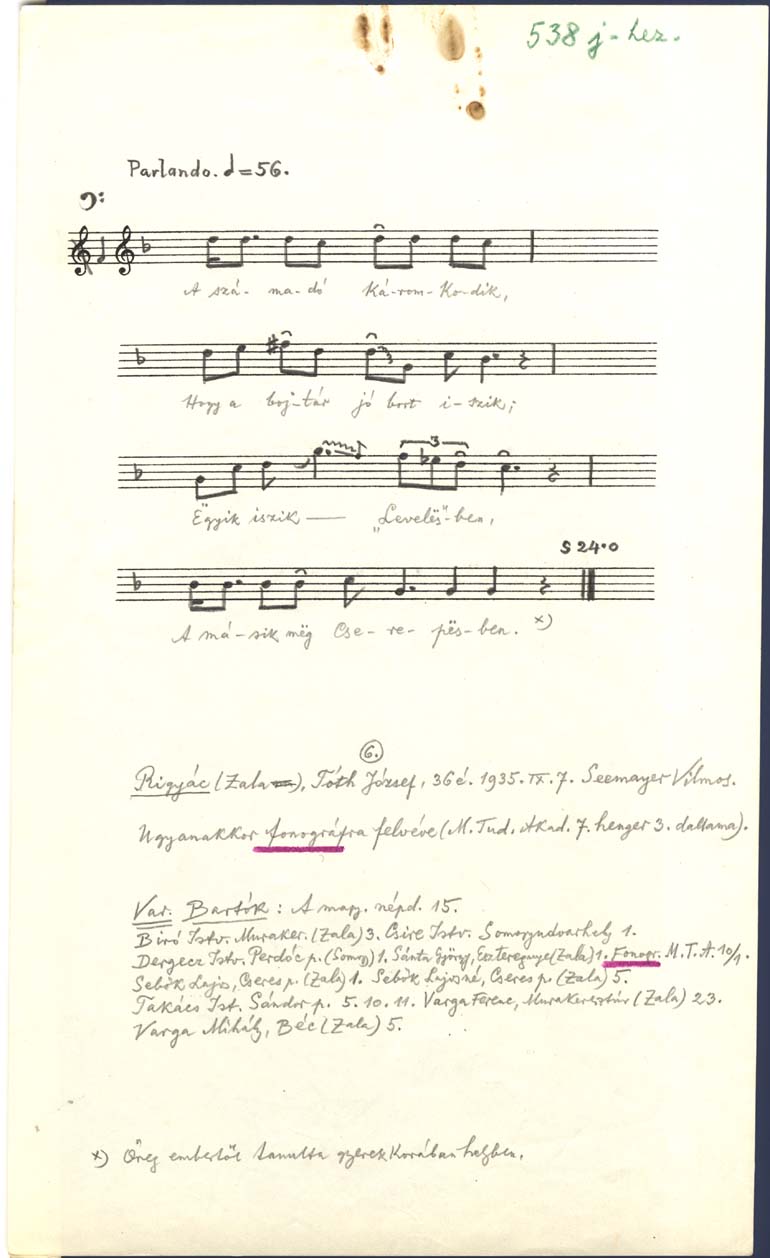 538 j-hez.
Parlando. d=56.
A szá- ma-dó Ká-rom-Ko-dik,
Hogy a boj-tár jó bort i-szik;
3
Ëgyik iszik — „Levelës"-ben,
S 24.0
A má-sik mëg Cse-re-pës-ben. x)
6.
Rigyác (Zala), Tóth József, 36 é. 1935. IX. 7. Seemayer Vilmos.
Ugyanakkor fonográfra felvéve (M. Tud. Akad. 7. henger 3. dallama).
Var. Bartók: A magy. népd. 15.
Biró Istv. Muraker. (Zala) 3. Csire Istv. Somogyudvarhely 1.
Dergecz Istv. Perdóc p. (Somogy) 1. Sánta György, Eszteregnye (Zala) 1. Fonogr. M.T.A. 10/1.
Sebők Lajos, Cseres p. (Zala) 1. Sebők Lajosné, Cseres p. (Zala) 5.
Takács Ist. Sándor p. 5. 10. 11. Varga Ferenc, Murakeresztúr (Zala) 23.
Varga Mihály, Béc (Zala) 5.
x) Öreg embertől tanulta gyerek Korában helyben.